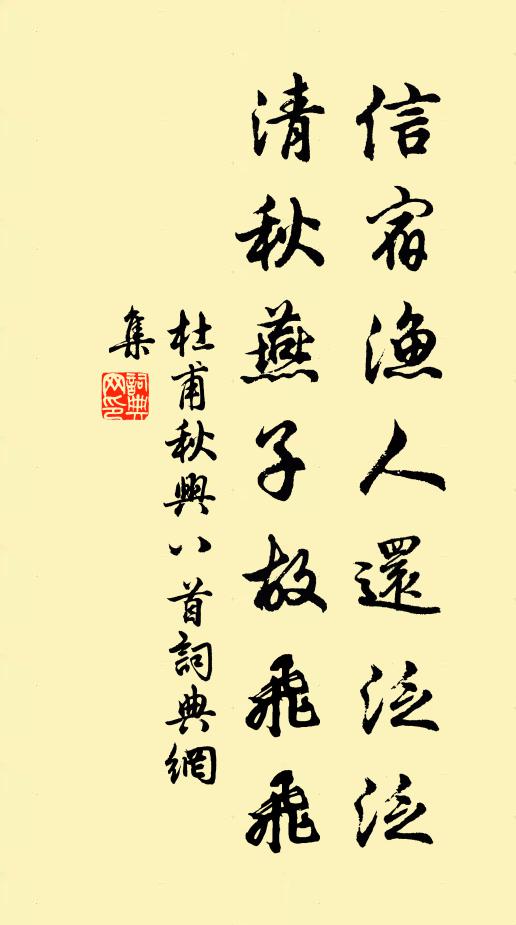 信宿漁人還泛泛
清秋燕子故飛飛
杜甫秋興八首詞典網
集
詞典
网印